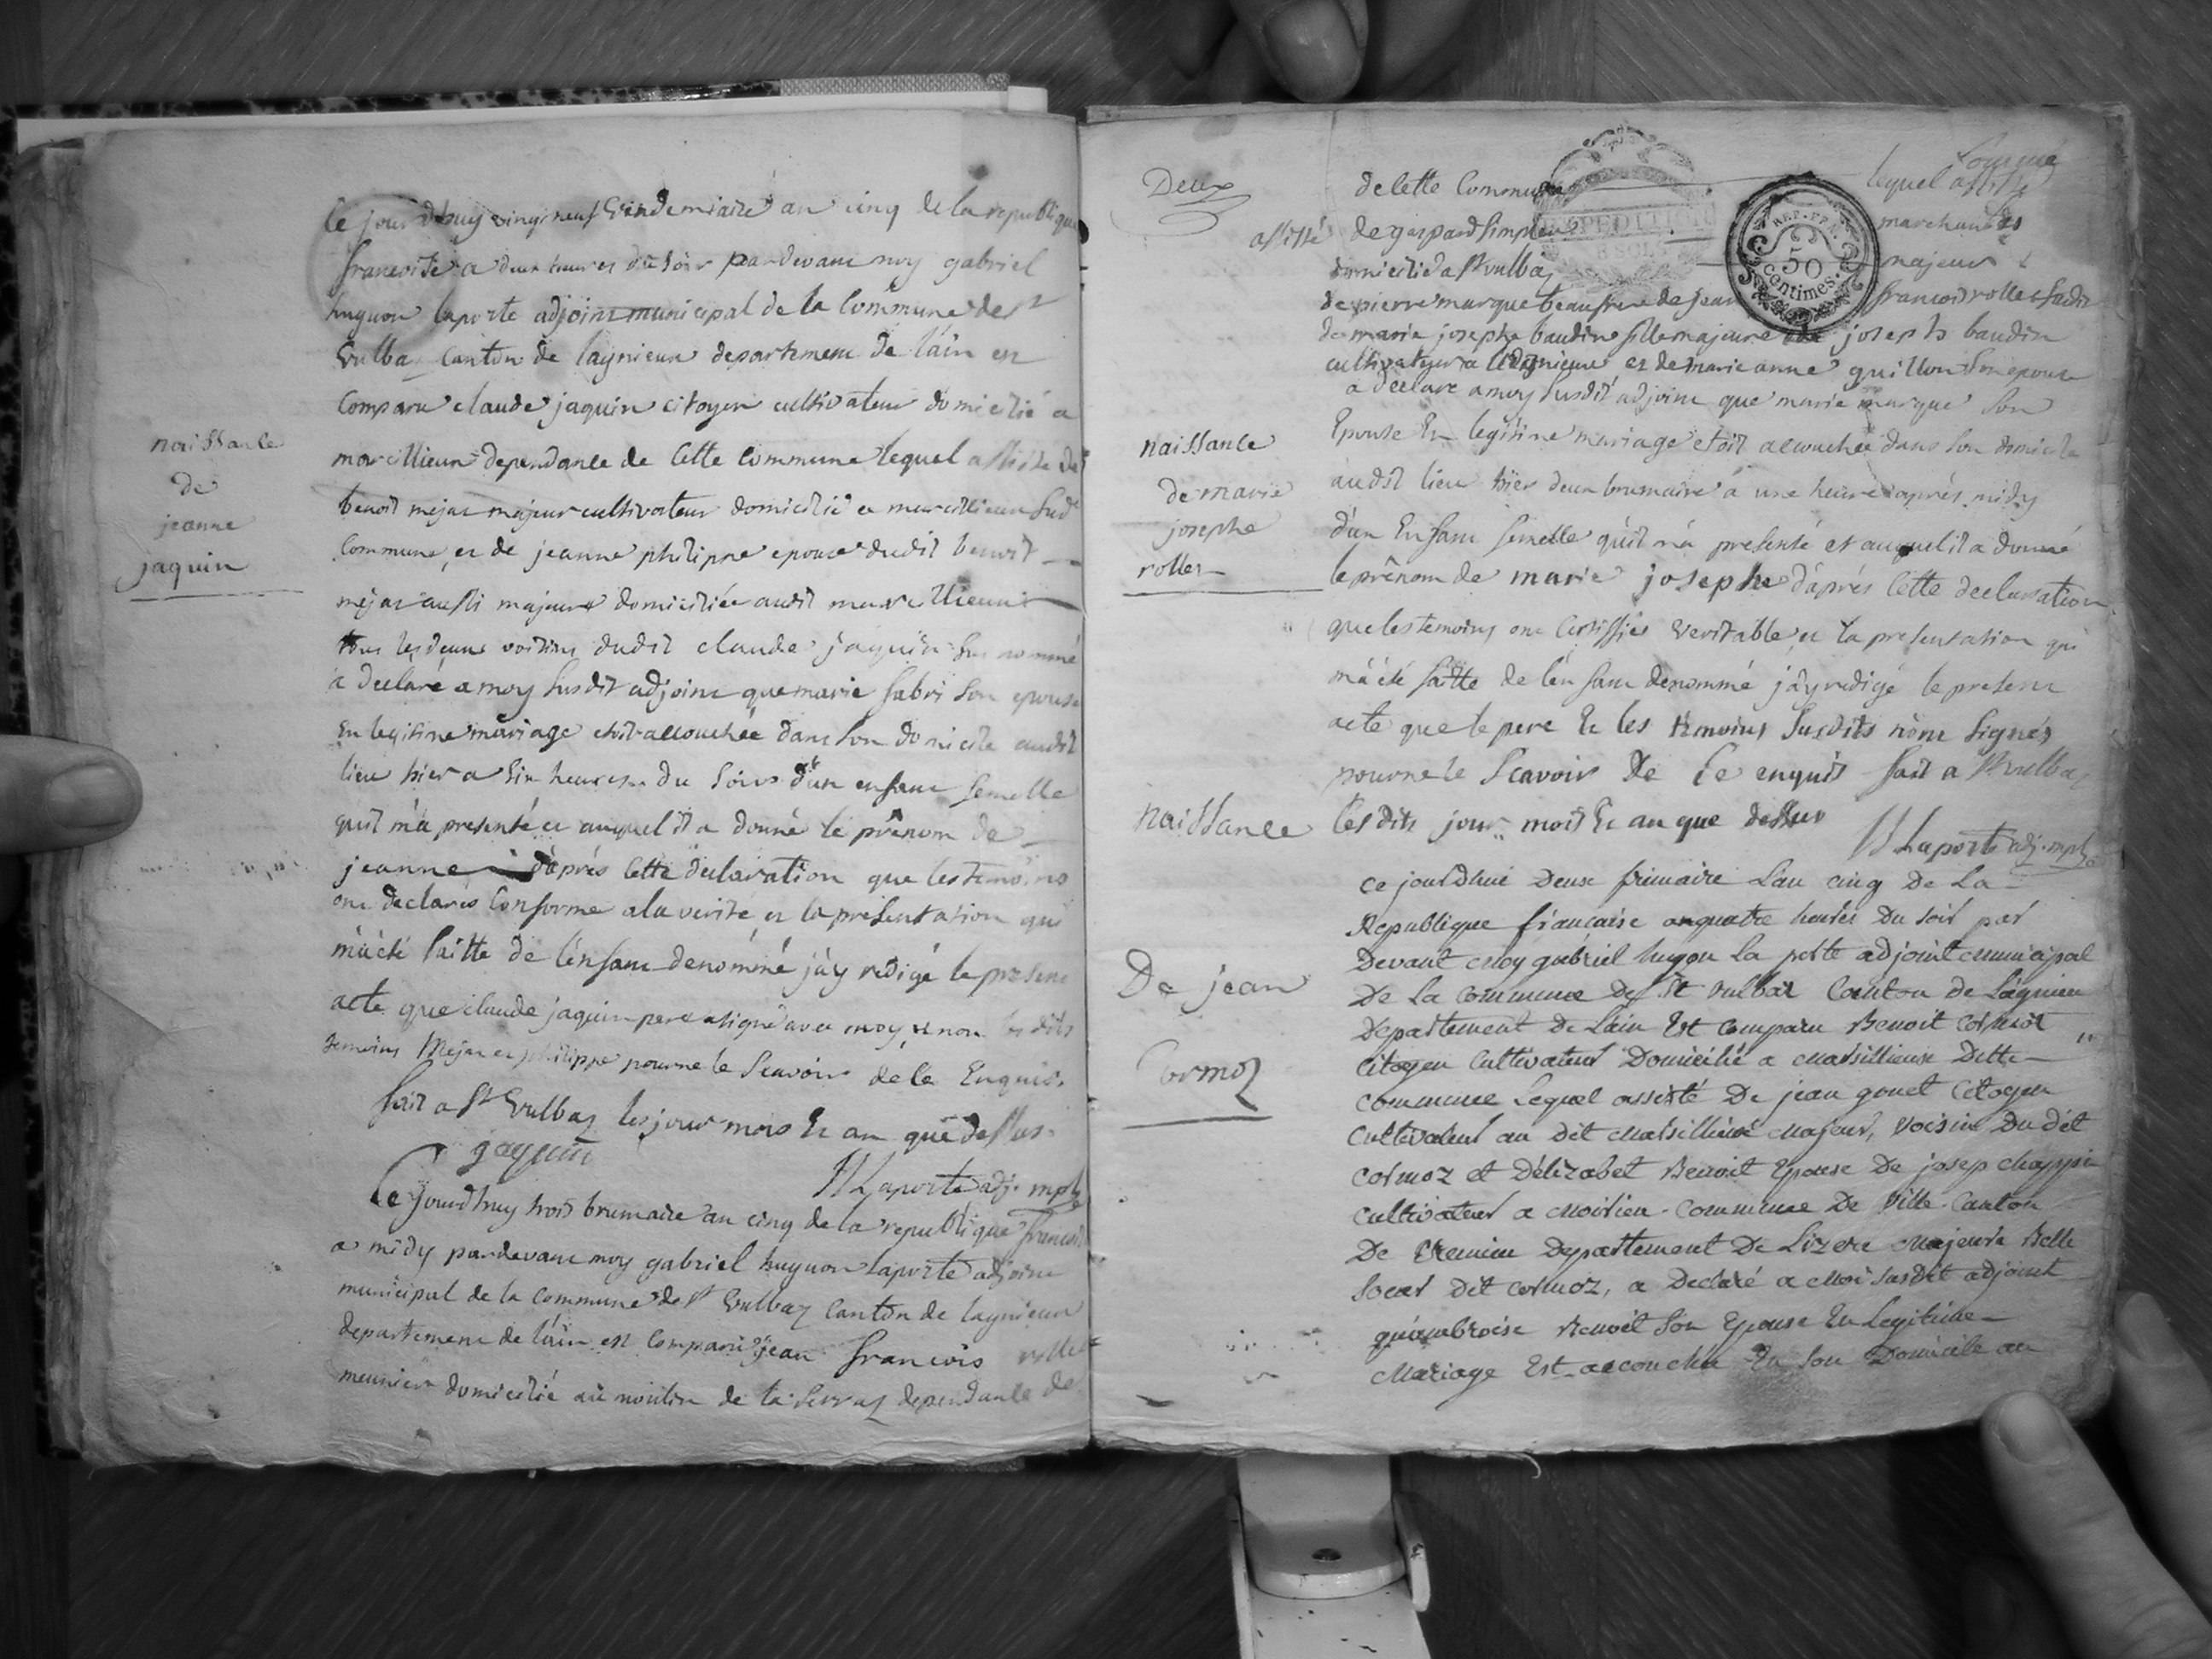 Ce jourd'huy vingt neuf Vendemiaire an cinq de la republique
francoise a deux heures du soir pardevant moy gabriel
huguon laporte adjoint municipal de la Commune de St
Vulbaz Canton de lagnieux departement de l'ain est
Comparu claude jaquin citoyen cultivateur domicilié a
marcillieux dependance de Cette Commune lequel assisté de
benoit mejat majeur cultivateur domicilié a marcillieux susd
Commune, et de jeanne philippe epouse dudit benoit
mejat aussi majeure domiciliée audit marcillieux
tous les deux voisins dudit claude jaquin sus nommé
a declaré a moy susdit adjoint que marie fabri son epouse
en legitime mariage etoit accouchée dans son domicile audit
lieu hier a six heures du soir d'un enfant femelle
quil m'a presenté et auquel il a donné le prénom de
jeanne d'aprés Cette declaration que les temoins
ont declarés Conforme a la verité et la presentation qui
m'a été faitte de l'enfant denommé j'ay redigé le present
acte que claude jaquin pere a signé avec moy et non lesdits
temoins Mejat et philippe pour ne le Scavoir de ce Enquis.
fait a St Vulbaz les jour mois Et an que dessus.
jaquin
H Laporte adj. mpl
naissance
de
jeanne
jaquin
Ce jourdhuy trois brumaire an cinq de la republique francoise
a midy pardevant moy gabriel huguon laporte adjoint
municipal de la Commune de St Vulbaz Canton de lagnieux
departement de l'ain est Comparu jean francois rollet
meunier domicilié au moulin de la Serraz dependance de
Deux
de Cette Commune lequel assisté
assisté de gaspard marchand
domicilié a St vulbaz majeur
de pierre marque beaufrere de jean francois rollet susdit
de marie josephe baudin fille majeure de joseph baudin
cultivateur a lagnieux et de marie anne guillon son epouse
a declaré a moy susdit adjoint que marie marque son
Epouse En legitime mariage etoit accouchée dans son domicile
audit lieu hier deux brumaire a une heure aprés midy
d'un Enfant femelle qu'il m'a presenté et auquel il a donné
le prénom de marie josephe d'aprés Cette declaration
que les temoins ont Certiffiés Veritable et la presentation qui
m'a été faitte de l'enfant denommé j'ay redigé le present
acte que le pere Et les temoins susdits n'ont signés
pour ne le Scavoir De Ce enquis fait a St vulbaz
les dits jour mois Et an que dessus
H Laporte adj. mpl
naissance
de marie
josephe
rollet
naissance
De jean
Cormoz
Ce jourdhui Deux frimaire L'an cinq De La
Republique française a quatre heures Du soir par
Devant Moy gabriel hugon La porte adjoint Municipal
De La Commune De St Vulbaz Canton de Lagnieu
Departement De Lain Est Comparu Benoit Cormoz
Citoyen Cultivateur Domicilié a Marsillieux Ditte
Commune Lequel assisté De jean gonet Citoyen
Cultivateur au Dit Marsillieux Majeur, Voisin Du dit
Cormoz et D'élizabet Benoit Epouse De josep chappi
Cultivateur a Commune De Ville Canton
De Cremieu Departement De Lizere Majeure Belle
Soeur Dit Cormoz, a Declaré a Moi susdit adjoint
qu'ambroise Benoit Son Epouse En Legitime
Mariage Est accouchée En Son Domicille au